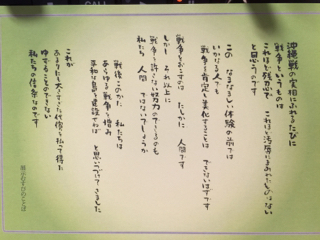 沖縄戦の実相にふれるたびに
戦争というものは
これほど残忍で これほど汚辱にまみれたものはない
と思うのです
この なまなましい体験の前では
いかなる人でも
戦争を肯定し美化することは できないはずです
戦争をおこすのは たしかに 人間です
しかし それ以上に
戦争を許さない努力のできるのも
私たち 人間 ではないでしょうか
戦後このかた 私たちは
あらゆる戦争を憎み
平和な島を建設せねば と思いつづけてきました
これが
あまりにも大きすぎた代償を払って得た
ゆずることのできない
私たちの信条なのです
展示むすびのことば